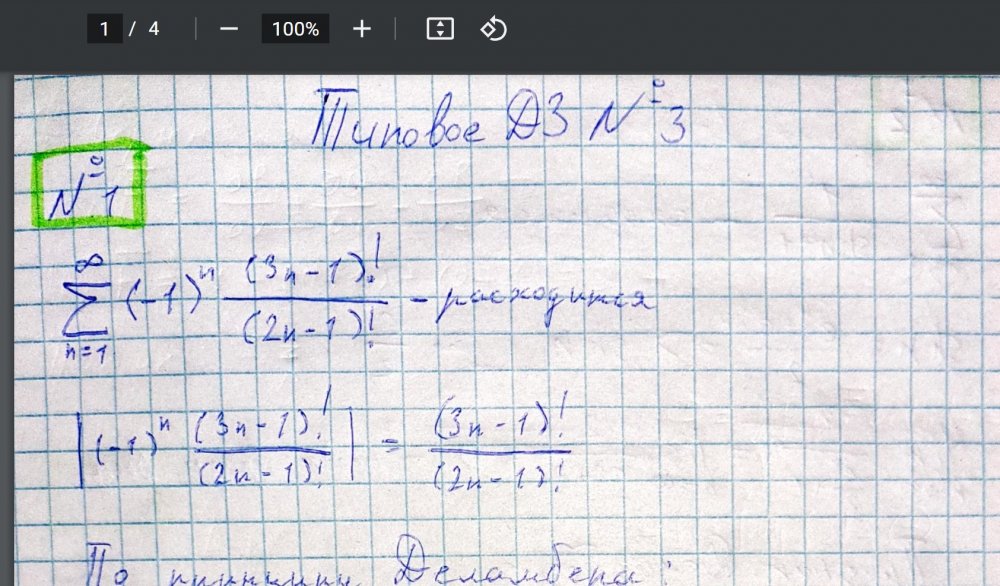 1 / 4 − 100% +
Типовое ДЗ №3
№1
∞
∑ (-1)ⁿ (3n-1)! / (2n-1)! - расходится
n=1
|(-1)ⁿ (3n-1)! / (2n-1)!| = (3n-1)! / (2n-1)!
По Деламбера: